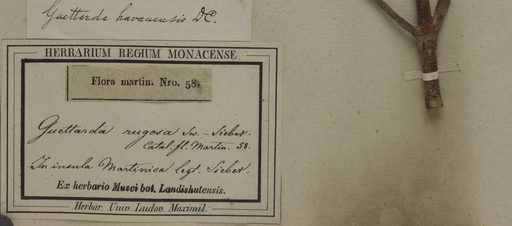 Guettarda havanensis DC.
HERBARIUM REGIUM MONACENSE
Flora martin. Nro. 58.
Guettarda rugosa Sw. – Sieber.
Catal. fl. Martin. 58.
In insula Martinica legt. Sieber.
Ex herbario Musei bot. Landishutensis.
Herbar. Univ. Ludov. Maximil.